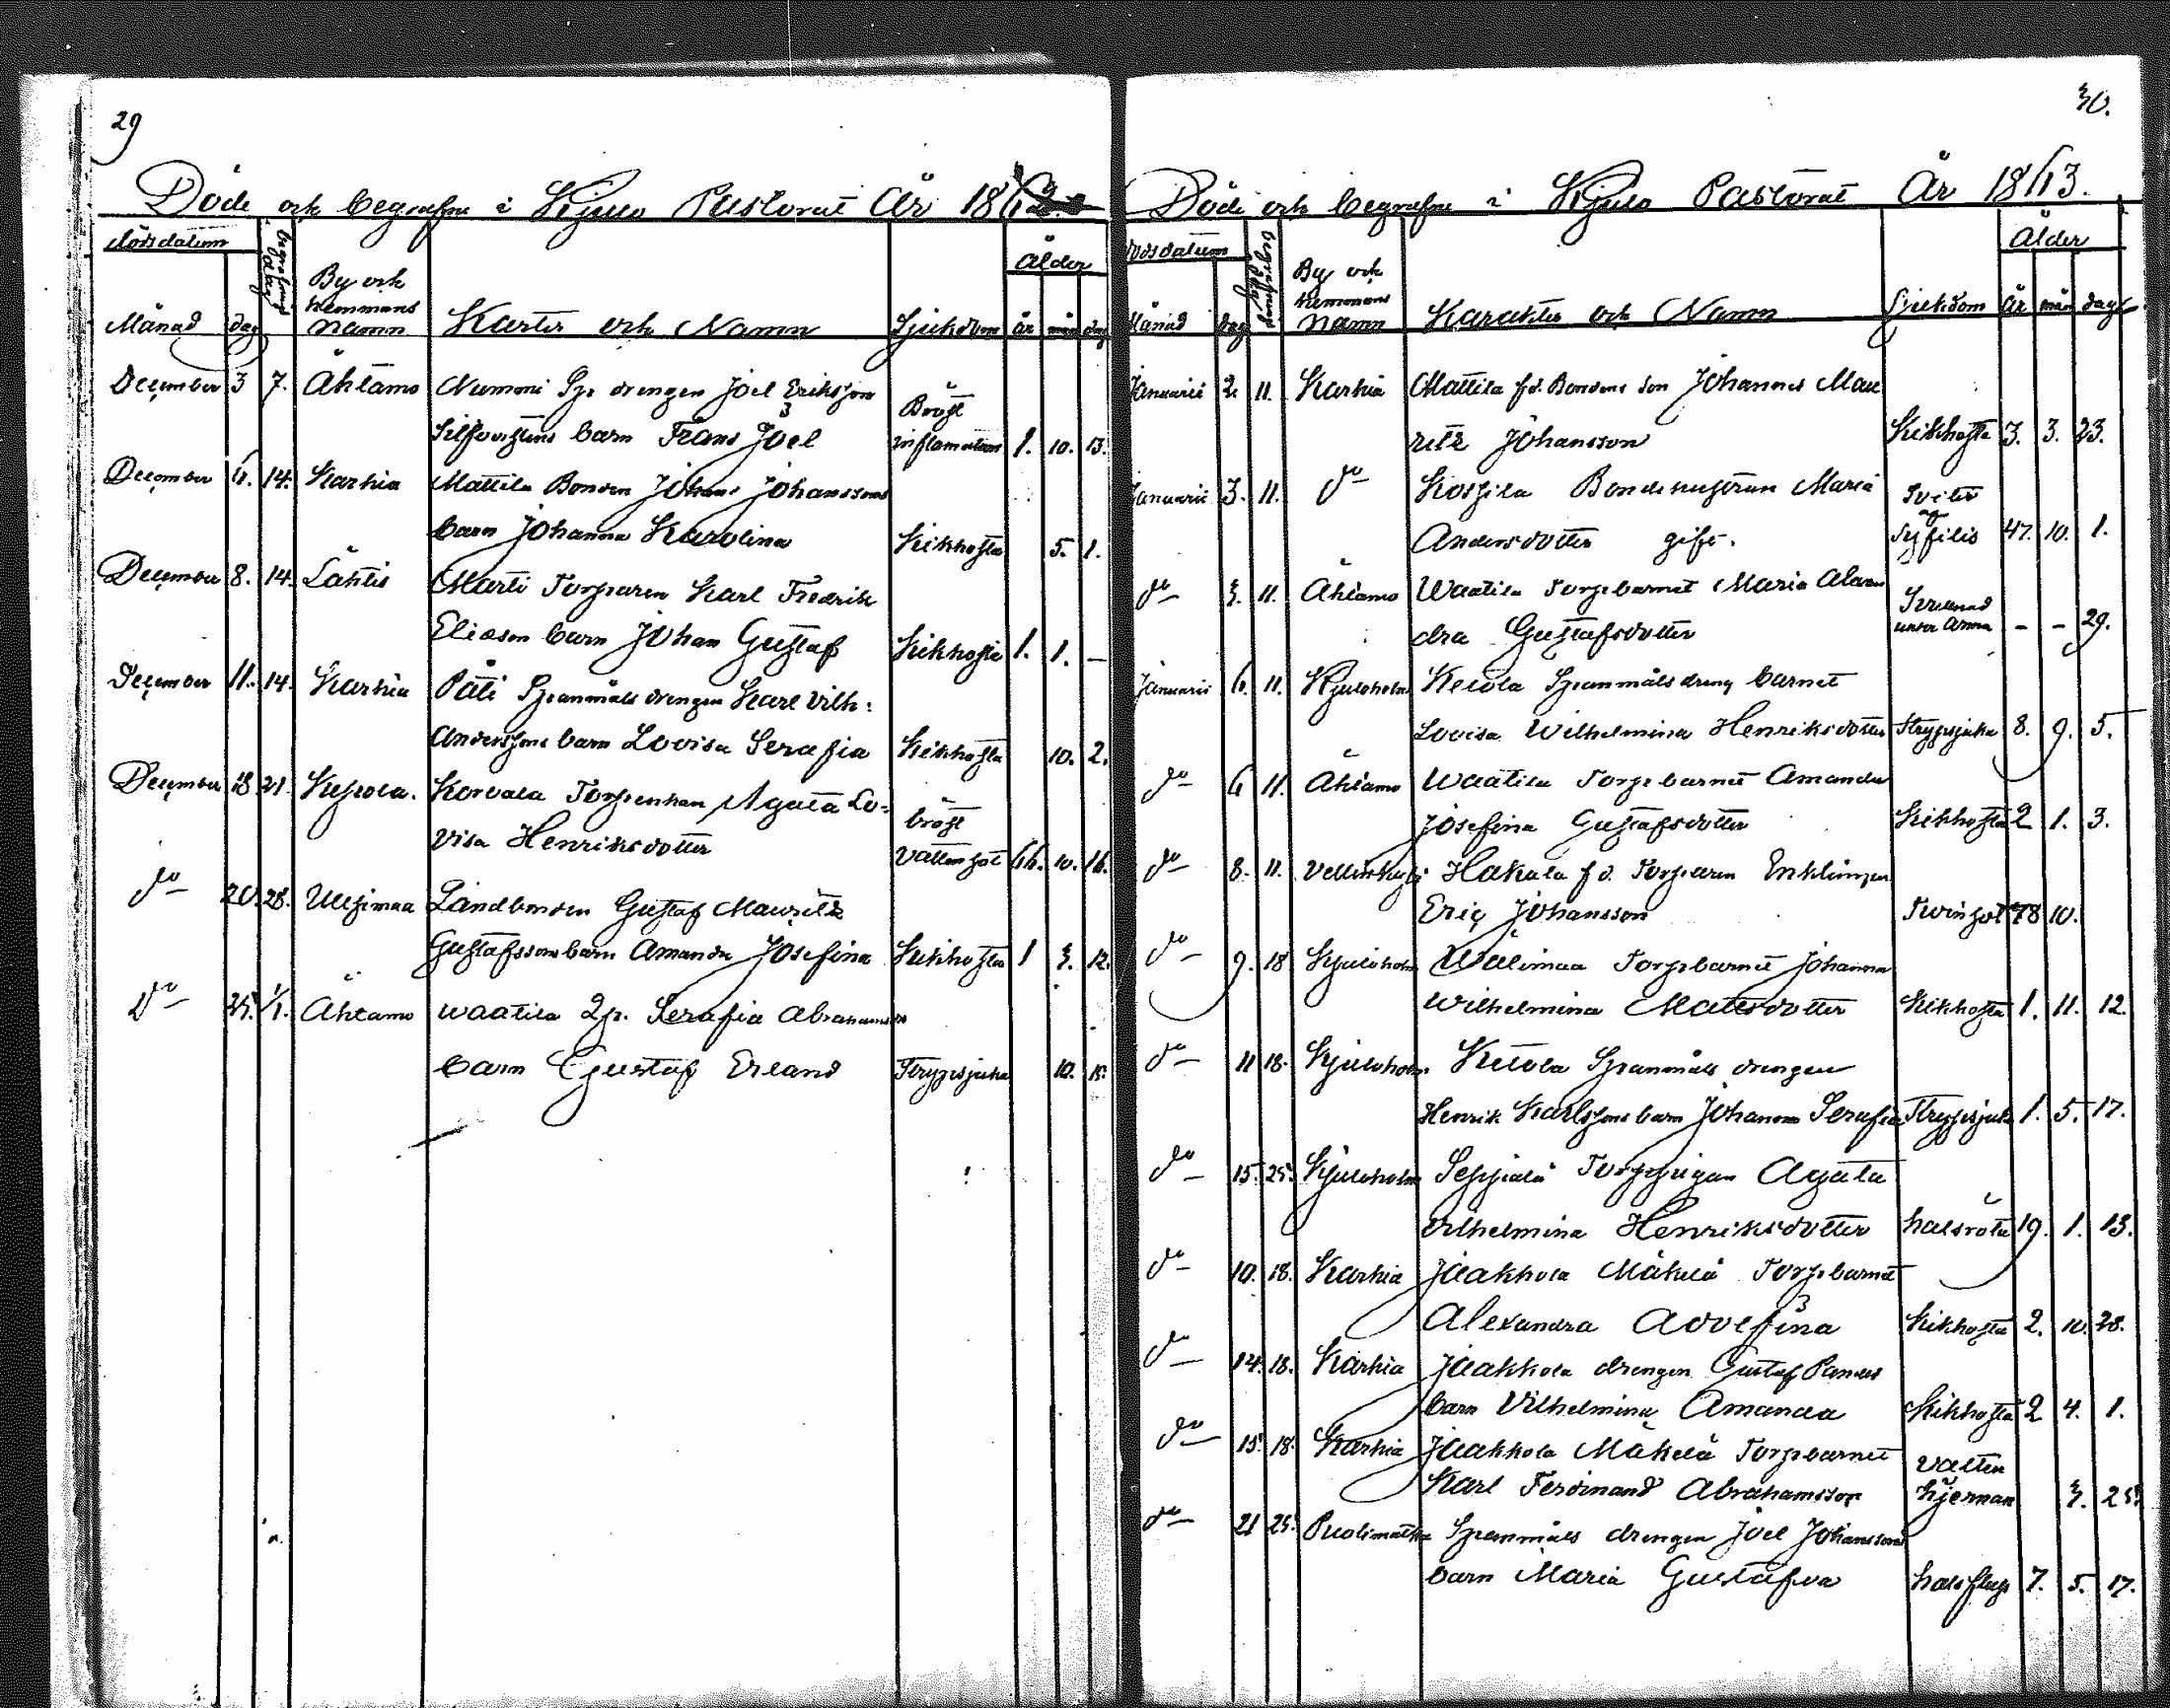 29
Döde och begrafne i Kjulo Pastorat År 1862
dödsdatum
begrafnings dag
By och
hemmans
Namn
Ålder
Månad dag Karkter och Namn Sjukdom år mån dag
December 3 7. Ähtämo Numoni Sp. drengen Joel Eriksson
Silfverstens barn Frans Joel Bröst inflamation 1. 10. 13.
December 6. 14. Karhia Mattila Bonden Johans Johanssons
barn Johanna Karolina Kikhosta 5. 1.
December 8. 14. Lähtis Martti Torparen Karl Fredrik
Eliæson barn Johan Gustaf Kikhosta 1. 1. —
December 11. 14. Karhia Päti Spanmåls drengen Karl Vilh:
Anderssons barn Lovisa Serafia Kikhosta 10. 2.
December 18 21. Kepola. Korvala Torpenkan Agata Lo-
visa Henriksdotter bröst vattensot 66. 10. 16.
do 20. 28. Uusimaa Landbonden Gustaf Mauritz
Gustafssons barn Amanda Josefina Kikhosta 1 3. 12.
Do 25. 1/1. Ähtämo Waatila Serafia Abrahamsd.
barn Gustaf Erland Strypsjuka 10. 15.
30.
Döde och begrafne i Kjulo Pastorat År 1863.
Dödsdatum
begrafnings dag
By och
hemmans
Namn
Ålder
Månad dag Karakter och Namn Sjukdom år mån dagar
Januarii 2. 11. Karhia Mattila f.d. Bondens son Johannes Mau
ritz Johansson Kikhosta 3. 3. 23.
Januarii 3. 11. do Koskila Bondehustrun Maria
Andersdotter gift. Sviter af Syfilis 47. 10. 1.
do 3. 11. Ähtämo Waatila Torpbarnet Maria Alexan
dra Gustafsdotter under — — 29.
Januarii 6. 11. Kjuloholm Ketola Spanmåls dreng barnet
Lovisa Wilhelmina Henriksdotter Strypsjuka 8. 9. 5.
do 6 11. Ähtämo Waatila Torpbarnet Amanda
Josefina Gustafsdotter Kikhosta 2 1. 3.
do 8. 11. Vellinkylä Hakala f.d. Torparen Enklingen
Eric Johansson Tvinsot 78 10.
do 9. 18 Kjuloholm Wälimaa Torpbarnet Johanna
Wilhelmina Mattsdotter Kikhosta 1. 11. 12.
do 11 18. Kjuloholm Ketola Spanmåls drengen
Henrik Karlssons barn Johanna Serafia Strypsjuka 1. 5. 17.
do 15. 25. Kjuloholm Seppälä Torppigan Agata
Vilhelmina Henriksdotter halsröta 19. 1. 13.
do 10. 18. Karhia Jaakkola Mäkelä Torpbarnet
Alexandra Adolfina Kikhosta 2. 10. 28.
do 14. 18. Karhia Jaakkola drengen Gustaf
barn Vilhelmina Amanda Kikhosta 2 4. 1.
do 15. 18. Karhia Jaakkola Mäkelä Torpbarnet
Karl Ferdinand Abrahamsson vatten i hjernan 3. 25.
do 21 25. Puolimatka Spanmåls drengen Joel Johanssons
barn Maria Gustafva halsfluss 7. 5. 17.